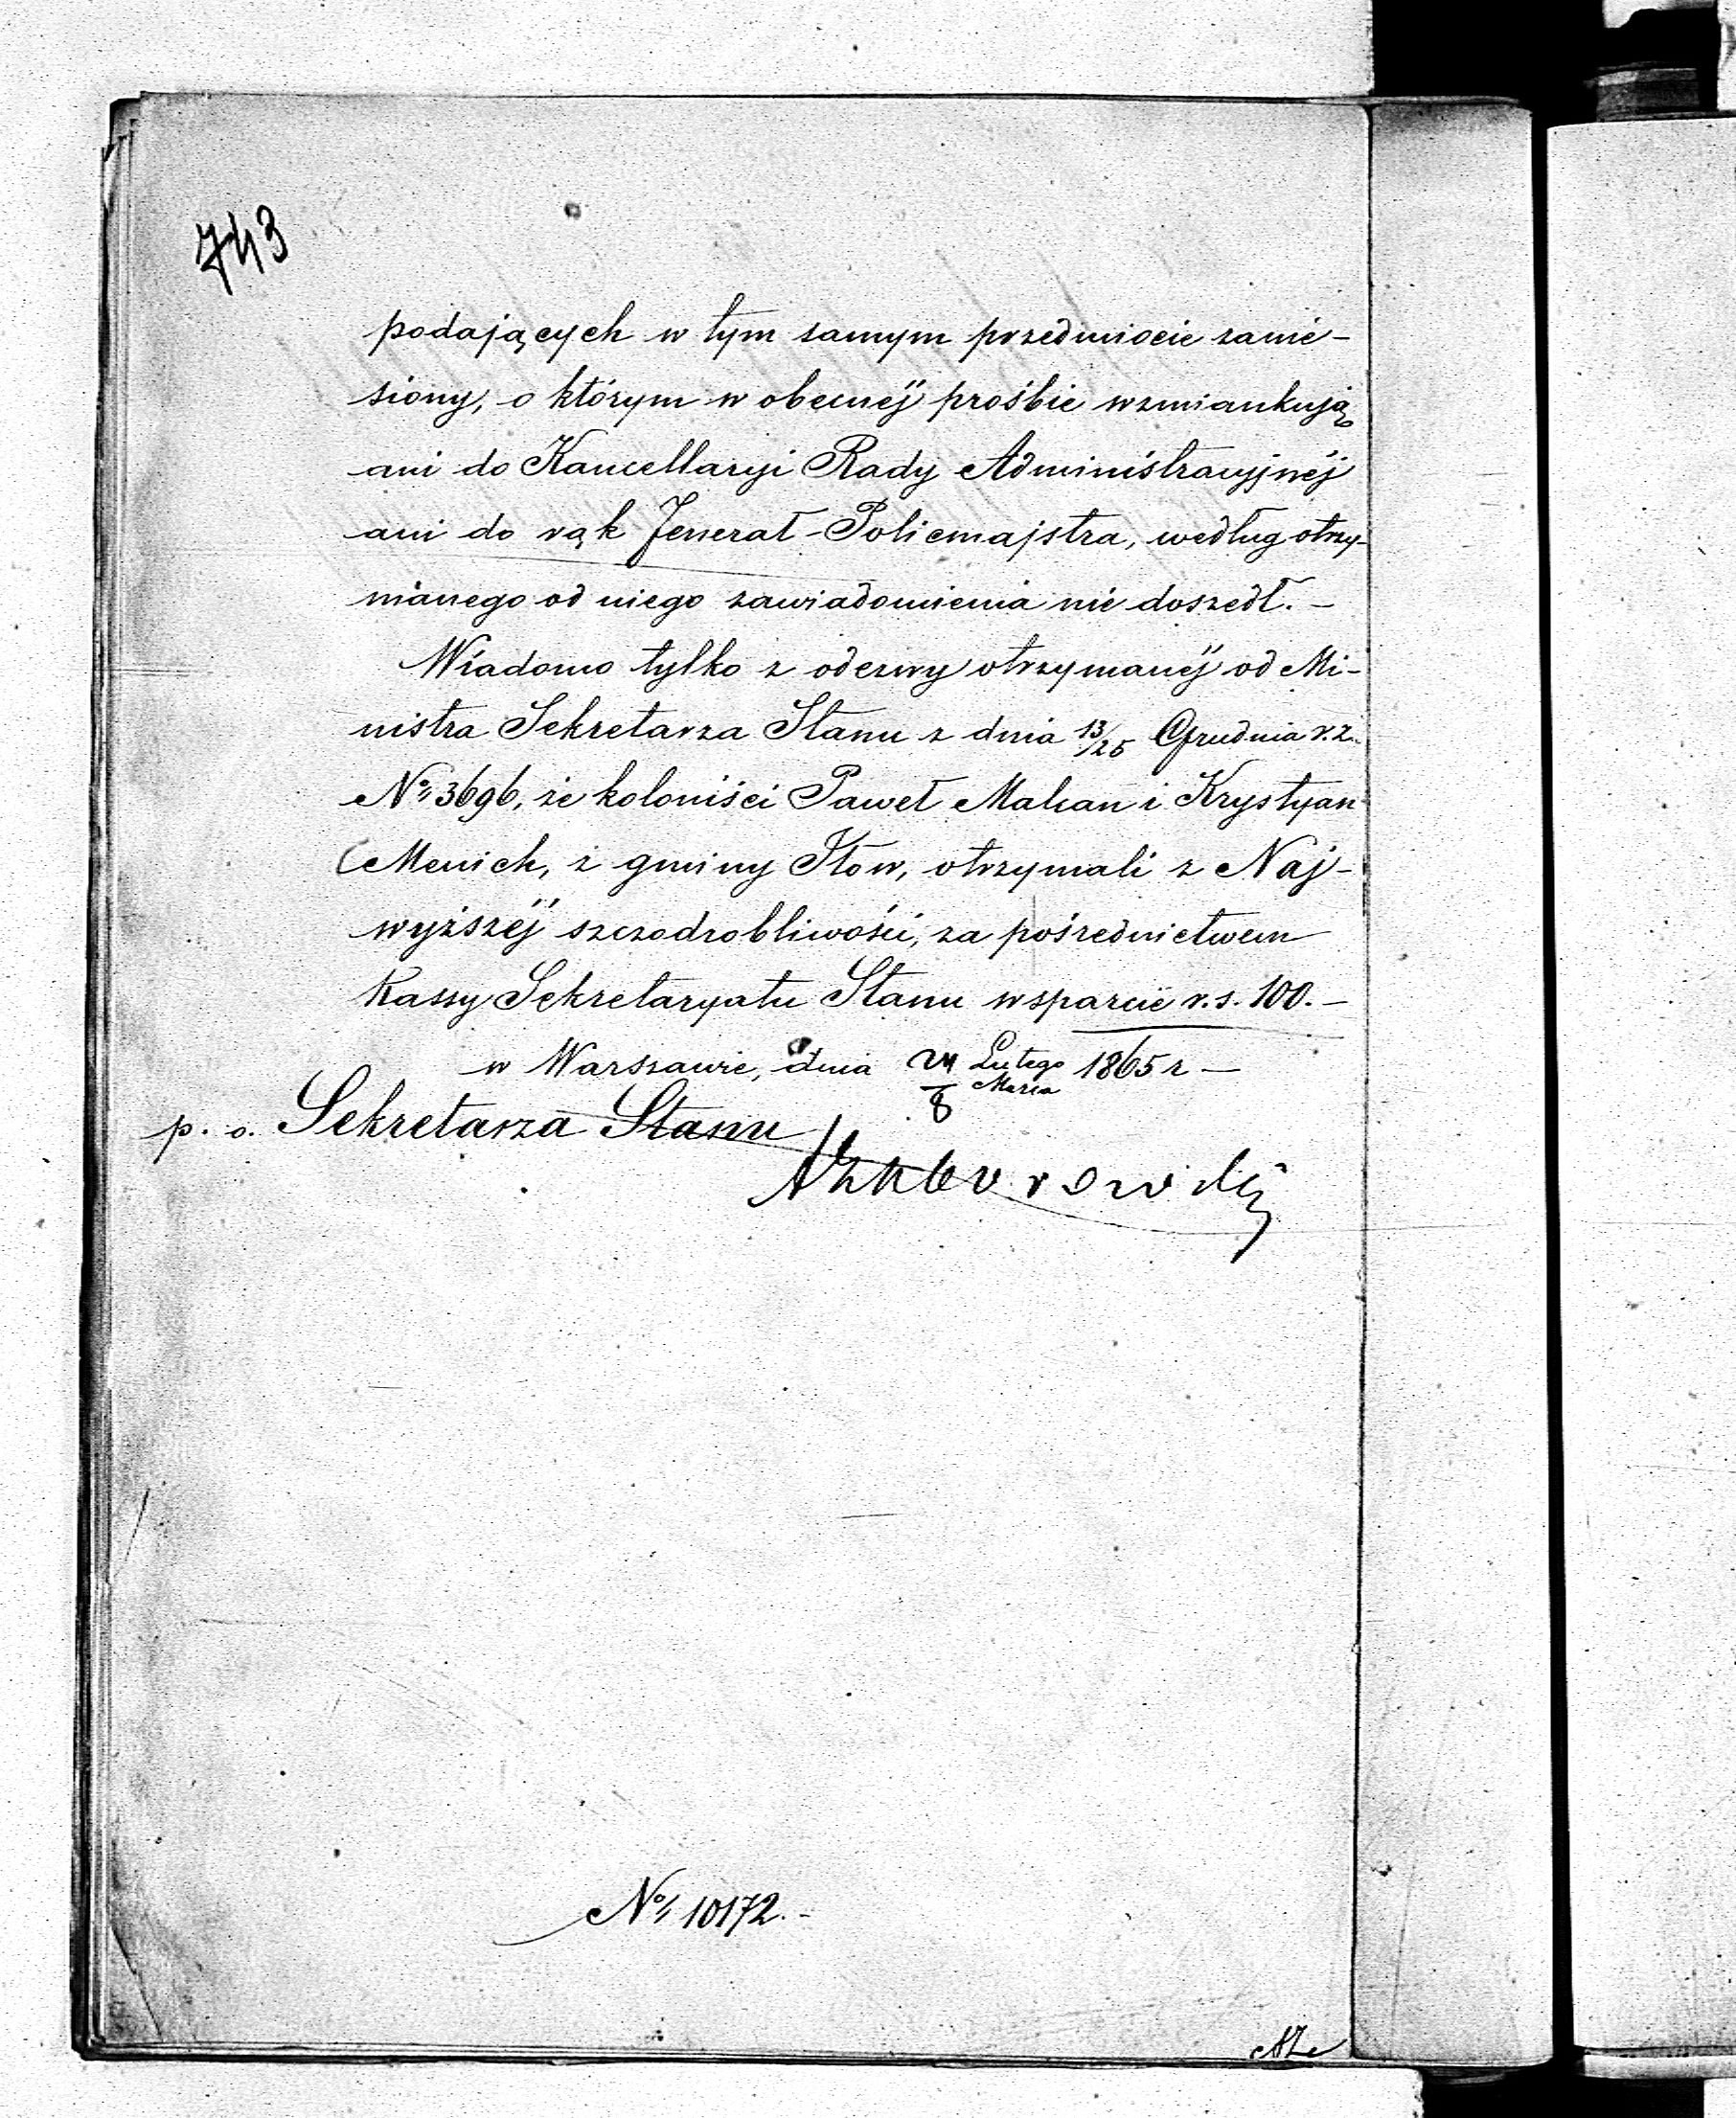 743
podających w tym samym przedmiocie zanie-
siony, o którym w obecnéj prośbie wzmiankują
ani do Kancellaryi Rady Administracyjnéj
ani do rąk Jenerał-Policmajstra, według otrzy-
manego od niego zawiadomienia nie doszedł. –
Wiadomo tylko z odezwy otrzymanéj od Mi-
nistra Sekretarza Stanu z dnia 13/25 Grudnia r. z.
No 3696, że koloniści Paweł Malzan i Krystyan
Menich, z gminy Iłow, otrzymali z Naj-
wyższéj szczodrobliwości, za pośrednictwem
Kassy Sekretaryatu Stanu wsparcie r. s. 100. –
w Warszawie, dnia Lutego 1865 r –
8 Marca
p. o. Sekretarza Stanu
No 10172. –